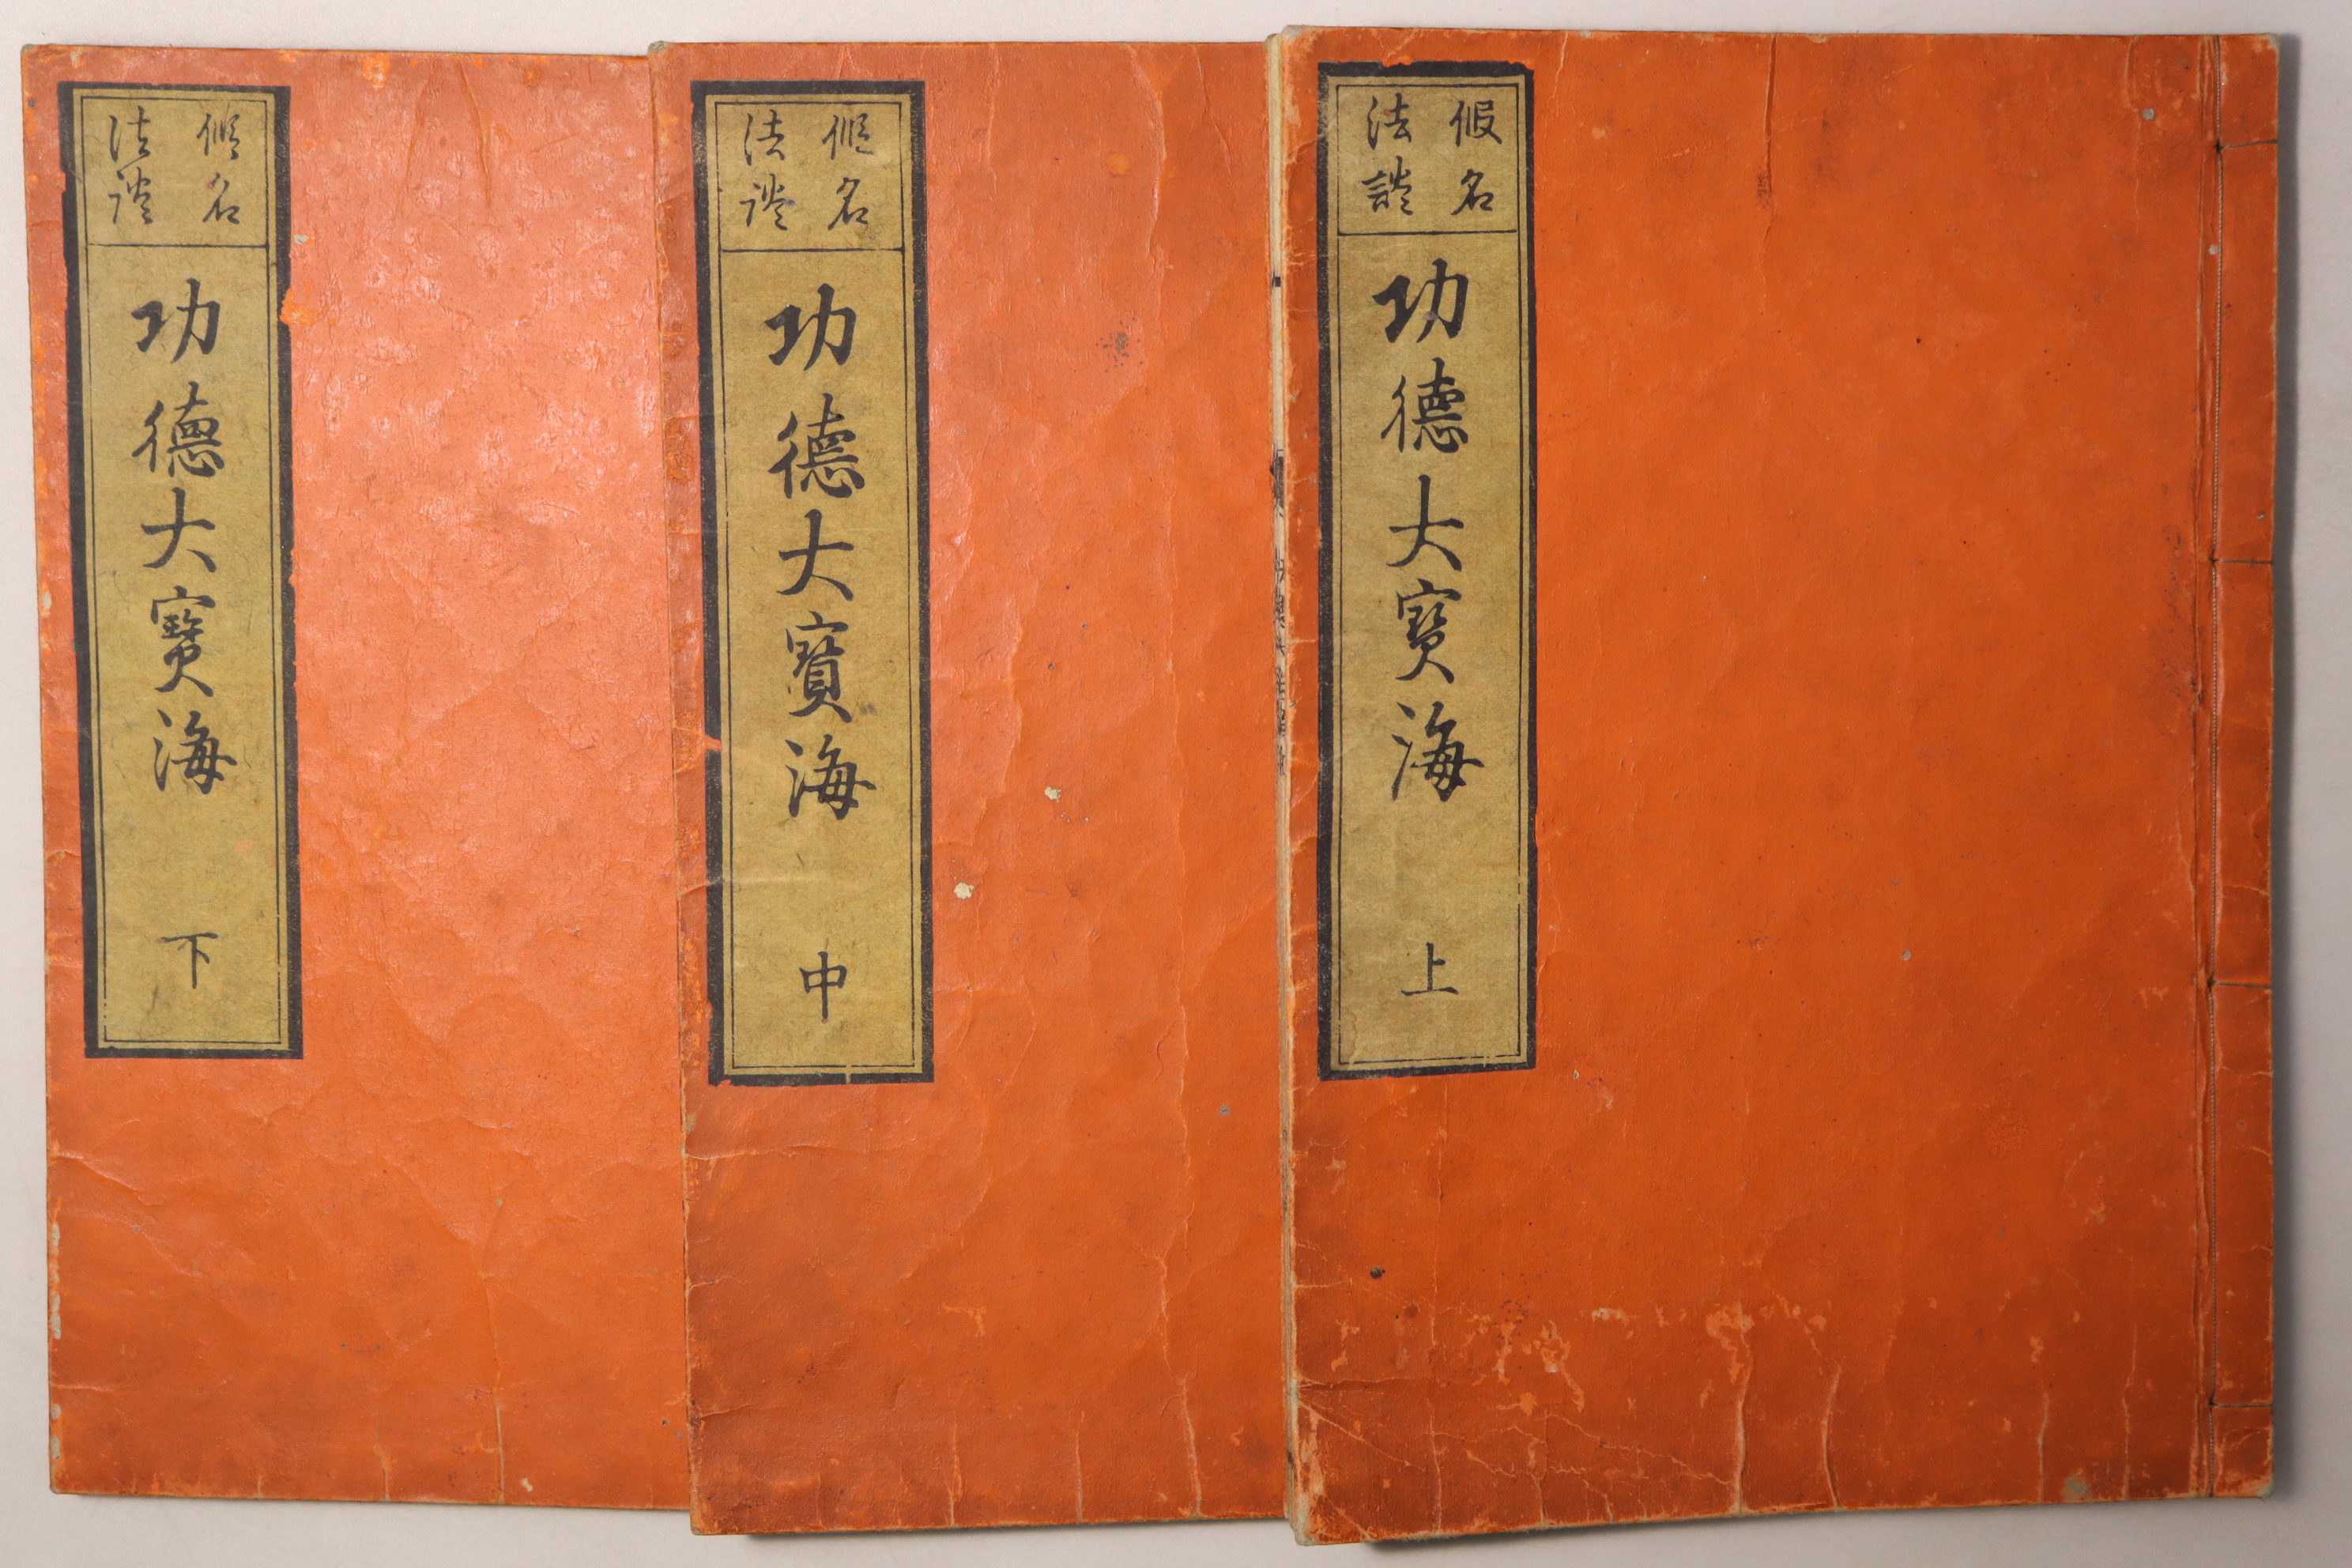 假名
法談
功德大寶海
上
假名
法談
功德大寶海
中
假名
法談
功德大寶海
下